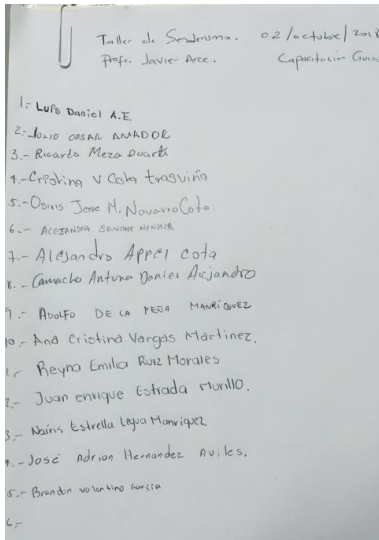 Taller de Senderismo. 02/octubre/2018
Profr. Javier Arce. Capacitación Guía
1.- Luis Daniel A.E
2.- JULIO CESAR AMADOR
3.- Ricardo Meza Duarte
4.- Cristina V Cota trasviña
5.- Osiris Jose M. Navarro Cota
6.- ALEJANDRA
7.- Alejandro Appel cota
8.- Camacho Antuna Daniel Alejandro
9.- ADOLFO DE LA PEÑA MANRIQUEZ
10.- Ana Cristina Vargas Martinez.
1,- Reyna Emilia Ruiz Morales
2.- Juan enrique Estrada Murillo.
3.- Nairis Estrella Leyva Manriquez
4.- José Adrian Hernandez Aviles.
5.- Brandon Valentino Garcia
6.-